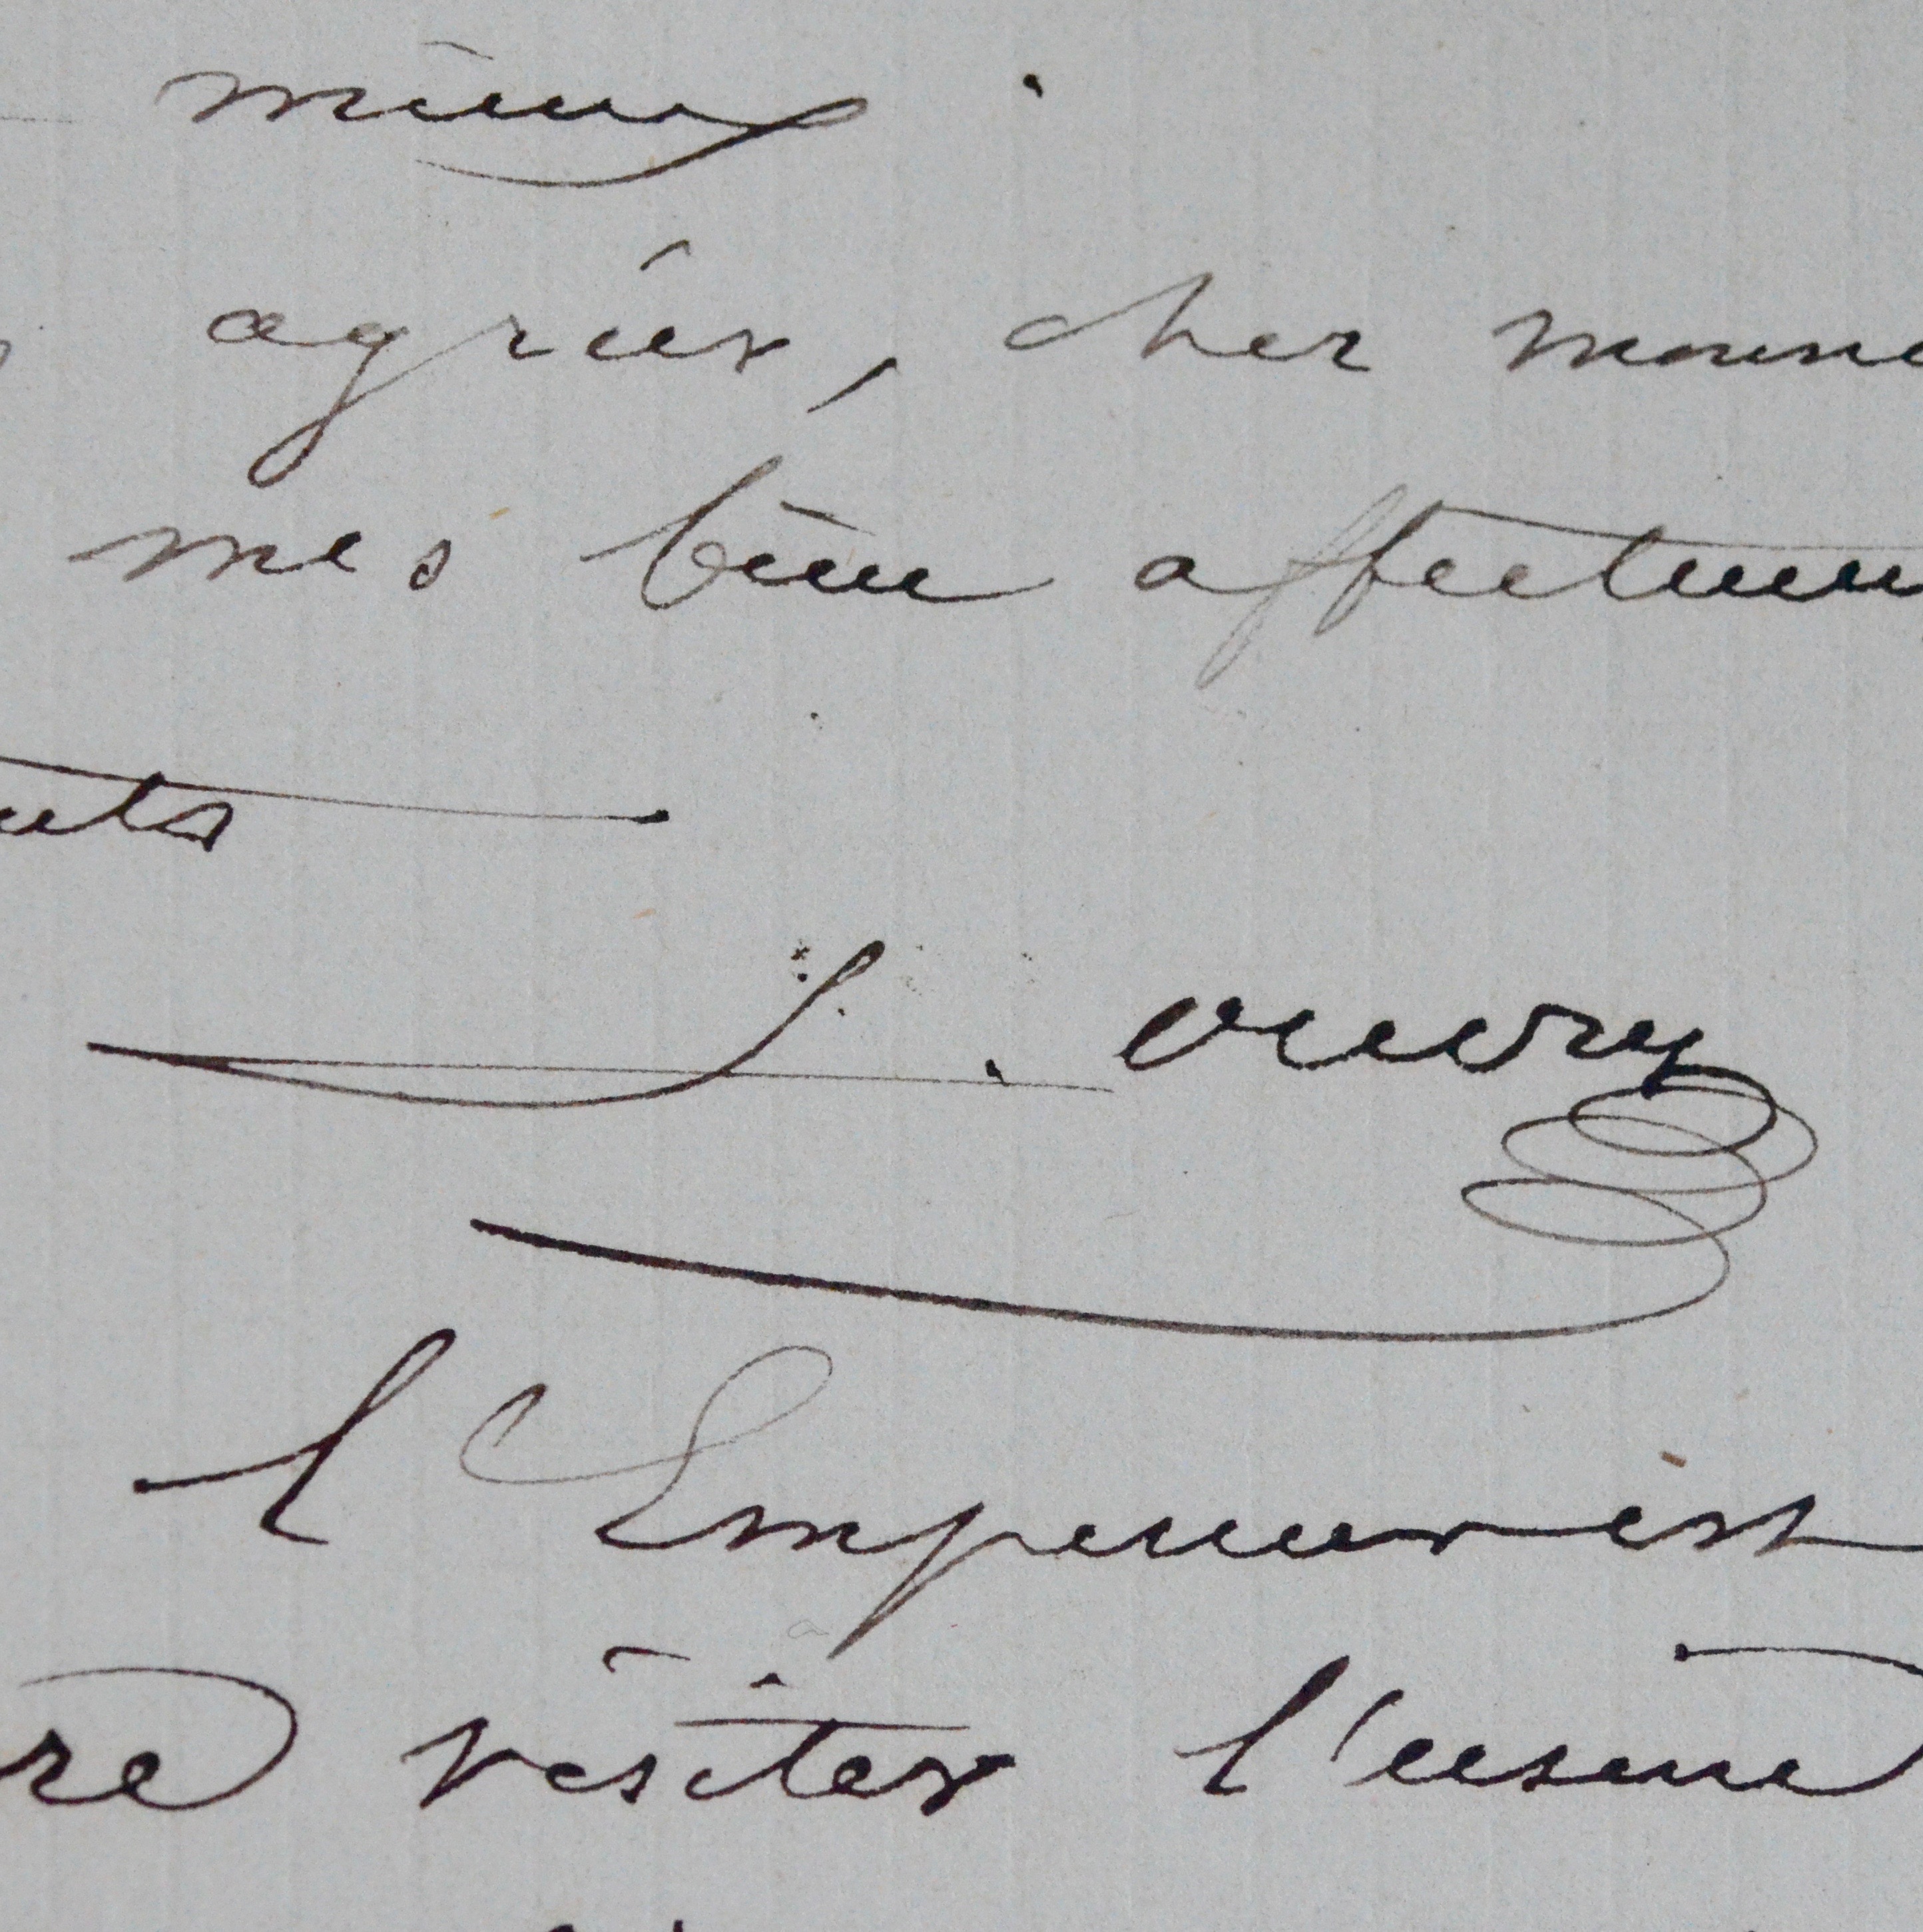 mieux.
agréer, cher mons
mes bien affectueu
nts
J. ouvry
l'Empereur est
re visiter l'usine